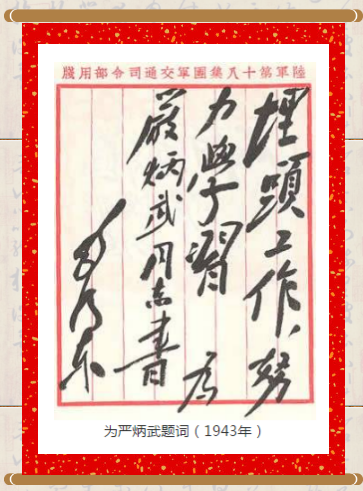 陸軍第十八集團軍交通司令部用牋
埋頭工作，努
力學習 为
嚴炳武同志書
毛泽东
为严炳武题词（1943年）